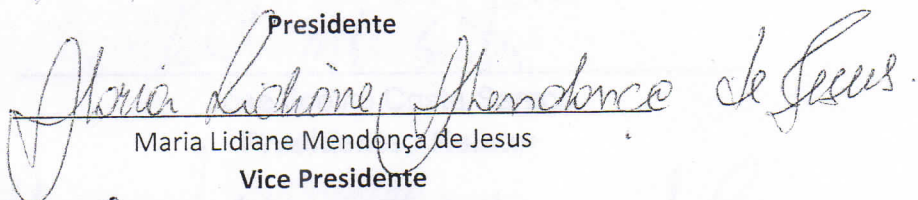 Presidente
Maria Lidiane Mendonça de Jesus.
Maria Lidiane Mendonça de Jesus
Vice Presidente